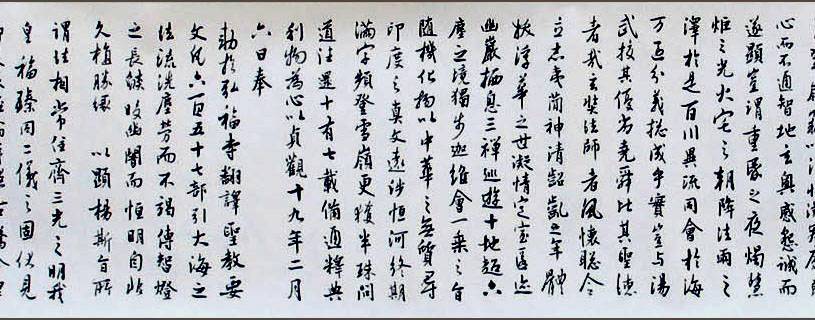 心而不通智地玄奧感懇誠而
遂顯豈謂重昏之夜燭慧
炬之光火宅之朝降法雨之
澤於是百川異流同會於海
万區分義捴成乎實豈与湯
武校其優劣堯舜比其聖德
者哉玄奘法師者夙懷聰令
立志夷簡神清齠齔之年體
拔浮華之世凝情定室匿迹
幽巖栖息三禪巡遊十地超六
塵之境獨步迦維會一乘之旨
隨機化物以中華之無質尋
印度之真文遠涉恒河終期
滿字頻登雪嶺更獲半珠問
道往還十有七載備通釋典
利物為心以貞觀十九年二月
六日奉
勅於弘福寺翻譯聖教要
文凡六百五十七部引大海之
法流洗塵勞而不竭傳智燈
之長焰皎幽闇而恒明自非
久植勝緣 以顯揚斯旨所
謂法相常住齊三光之明我
皇福臻同二儀之固伏見